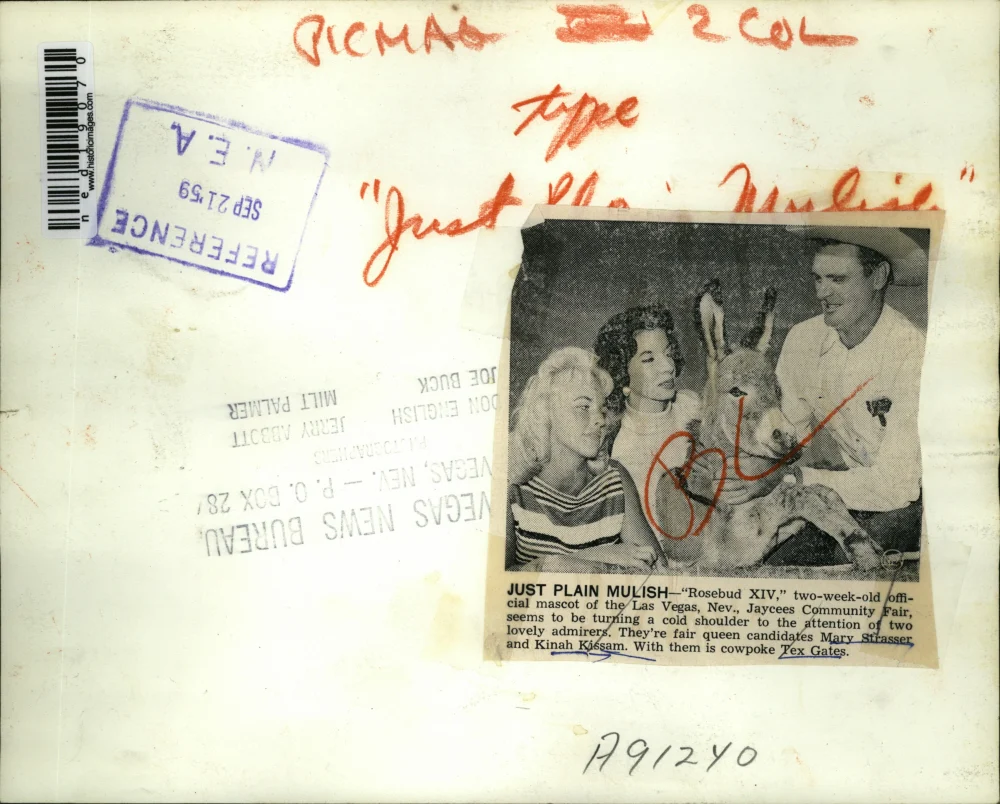 PICMAG 2 COL
type
"Just Plain Mulish"
n e d 1 9 0 7 0
www.historicimages.com
N. E. A.
SEP 21 '59
REFERENCE
VEGAS NEWS BUREAU
VEGAS, NEV. — P. O. BOX 28
PHOTOGRAPHERS
DON ENGLISH JERRY ABBOTT
JOE BUCK MILT PALMER
BL
JUST PLAIN MULISH—"Rosebud XIV," two-week-old offi-
cial mascot of the Las Vegas, Nev., Jaycees Community Fair,
seems to be turning a cold shoulder to the attention of two
lovely admirers. They're fair queen candidates Mary Strasser
and Kinah Kissam. With them is cowpoke Tex Gates.
A91240